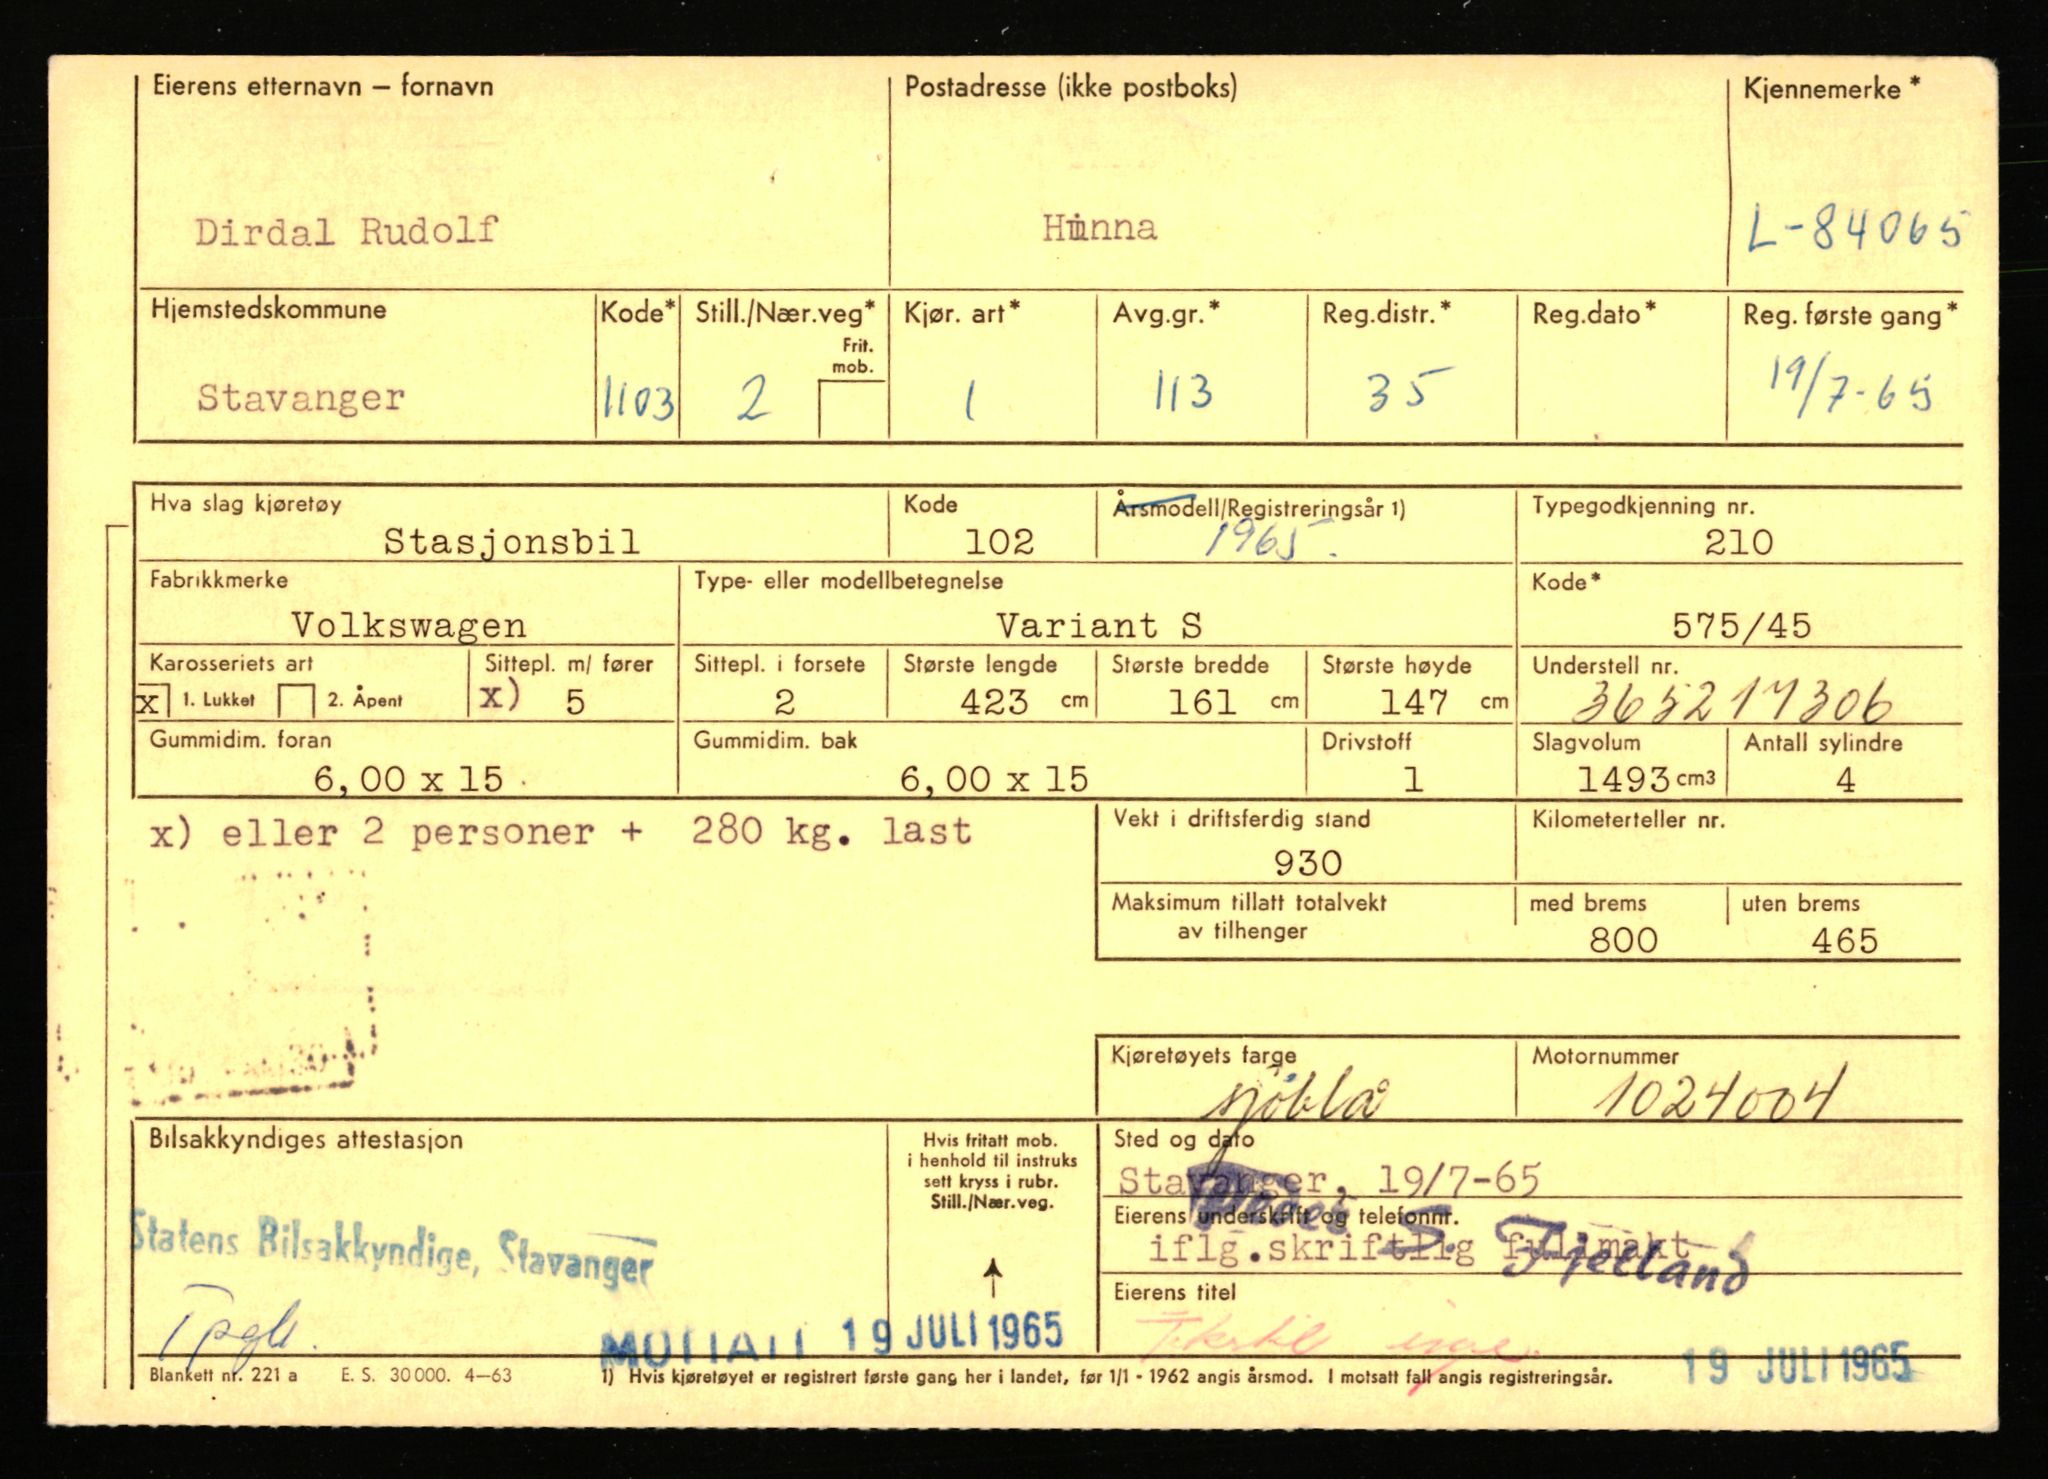 Eierens etternavn – fornavn Postadresse (ikke postboks) Kjennemerke *
Dirdal Rudolf Hinna L-84065
Hjemstedskommune Kode* Still./Nær.veg* Kjør. art* Avg.gr.* Reg.distr.* Reg.dato* Reg. første gang*
Frit. mob.
Stavanger 1103 2 1 113 35 19/7-65
Hva slag kjøretøy Kode Årsmodell/Registreringsår 1) Typegodkjenning nr.
Stasjonsbil 102 1965. 210
Fabrikkmerke Type- eller modellbetegnelse Kode*
Volkswagen Variant S 575/45
Karosseriets art Sittepl. m/ fører Sittepl. i forsete Største lengde Største bredde Største høyde Understell nr.
x 1. Lukket 2. Åpent x) 5 2 423 cm 161 cm 147 cm 365217306
Gummidim. foran Gummidim. bak Drivstoff Slagvolum Antall sylindre
6,00 x 15 6,00 x 15 1 1493 cm3 4
x) eller 2 personer + 280 kg. last
Vekt i driftsferdig stand Kilometerteller nr.
930
Maksimum tillatt totalvekt av tilhenger med brems uten brems
800 465
Kjøretøyets farge Motornummer
sjøblå 1024004
Bilsakkyndiges attestasjon
Hvis fritatt mob.
i henhold til instruks
sett kryss i rubr.
Still./Nær.veg.
Sted og dato
Stavanger, 19/7-65
Eierens underskrift og telefonnr.
iflg.skriftlig fullmakt
S. Fjelland
Statens Bilsakkyndige, Stavanger
Eierens titel
MOTTATT 19 JULI 1965
19 JULI 1965
Blankett nr. 221 a E. S. 30 000. 4–63 1) Hvis kjøretøyet er registrert første gang her i landet, før 1/1 - 1962 angis årsmod. I motsatt fall angis registreringsår.